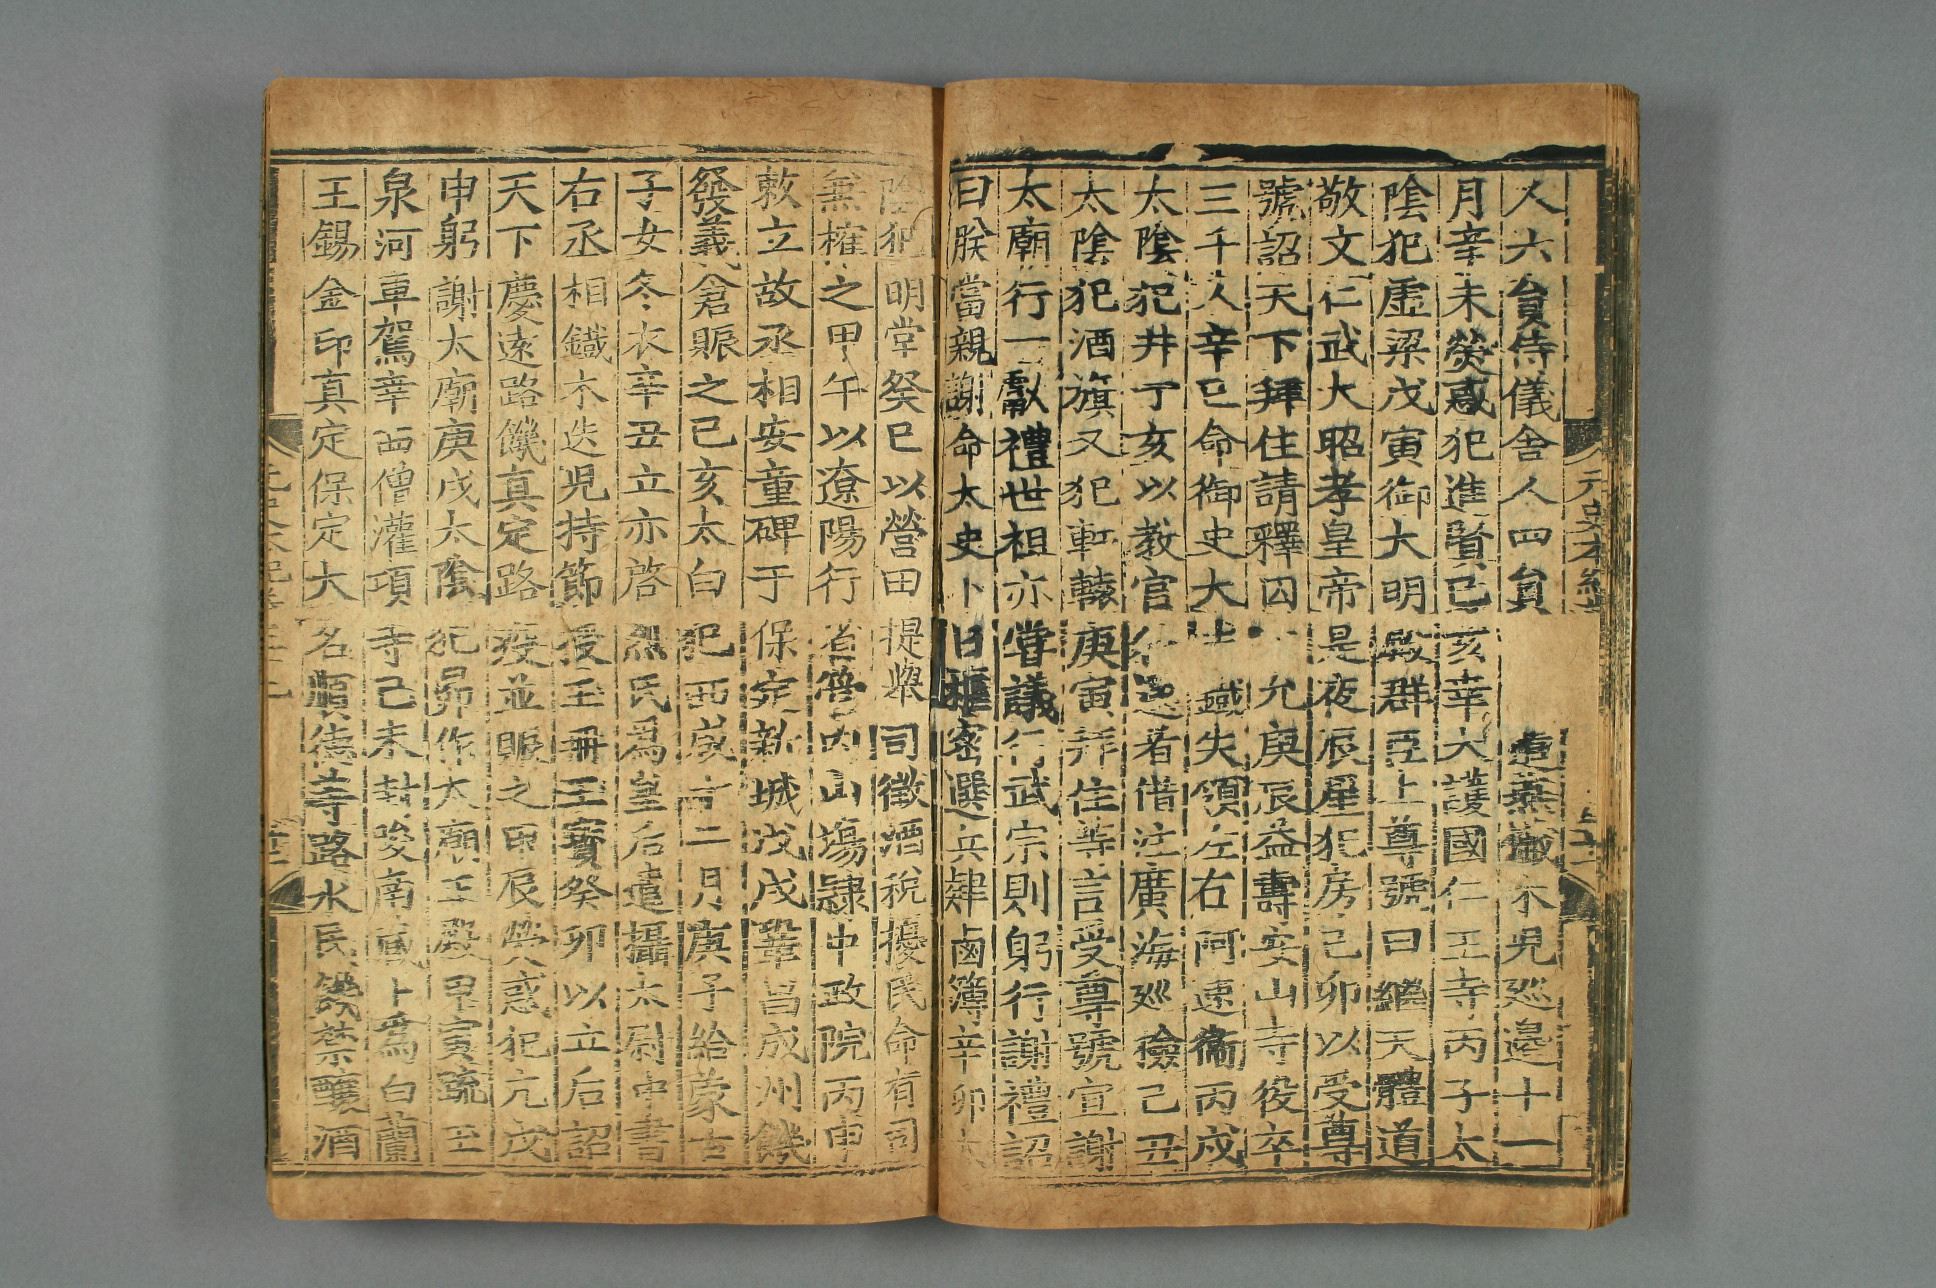 人六員侍儀舍人四員　遣燕鐵木兒巡邊十一
月辛未熒惑犯進賢己亥幸大護國仁王寺丙子太
陰犯虛梁戊寅御大明殿群臣上尊號曰繼天體道
敬文仁武大昭孝皇帝是夜辰星犯房己卯以受尊
號詔天下拜住請釋囚　允庚辰益壽安山寺役卒
三千人辛巳命御史大　鐵失領左右阿速衞丙戌
太陰犯井丁亥以教官　選者借注廣海巡檢己丑
太陰犯酒旗又犯軒轅庚寅拜住等言受尊號宜謝
太廟行一獻禮世祖亦嘗議行武宗則躬行謝禮詔
曰朕當親謝命太史卜日樞密選兵肄鹵簿辛卯太
陰犯明堂癸巳以營田提舉司徵酒稅擾民命有司
無榷之甲午以遼陽行省管內山場隷中政院丙申
敕立故丞相安童碑于保定新城戊戌鞏昌成州饑
發義倉賑之己亥太白犯西咸十二月庚子給蒙古
子女冬衣辛丑立亦啓烈氏爲皇后遣攝太尉中書
右丞相鐵木迭兒持節授玉冊玉寶癸卯以立后詔
天下慶遠路饑真定路疫並賑之甲辰熒惑犯亢戊
申躬謝太廟庚戌太陰犯昴作太廟正殿甲寅疏玉
泉河車駕幸西僧灌頂寺己未封唆南藏卜爲白蘭
王錫金印真定保定大名順德等路水民饑禁釀酒